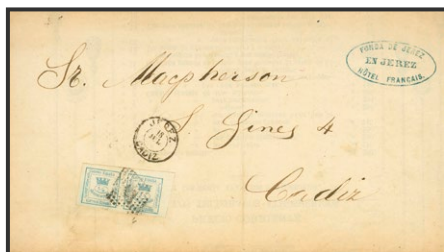 FONDA DE JEREZ
EN JEREZ
HÔTEL FRANÇAIS.
Sr. Macpherson
S. Gines 4
Cadiz
JEREZ
CADIZ